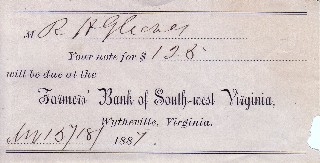 M R H Gleaves
Your note for $ 125
will be due at the
Farmers' Bank of South-west Virginia,
Wytheville, Virginia.
15/18/ 1887.